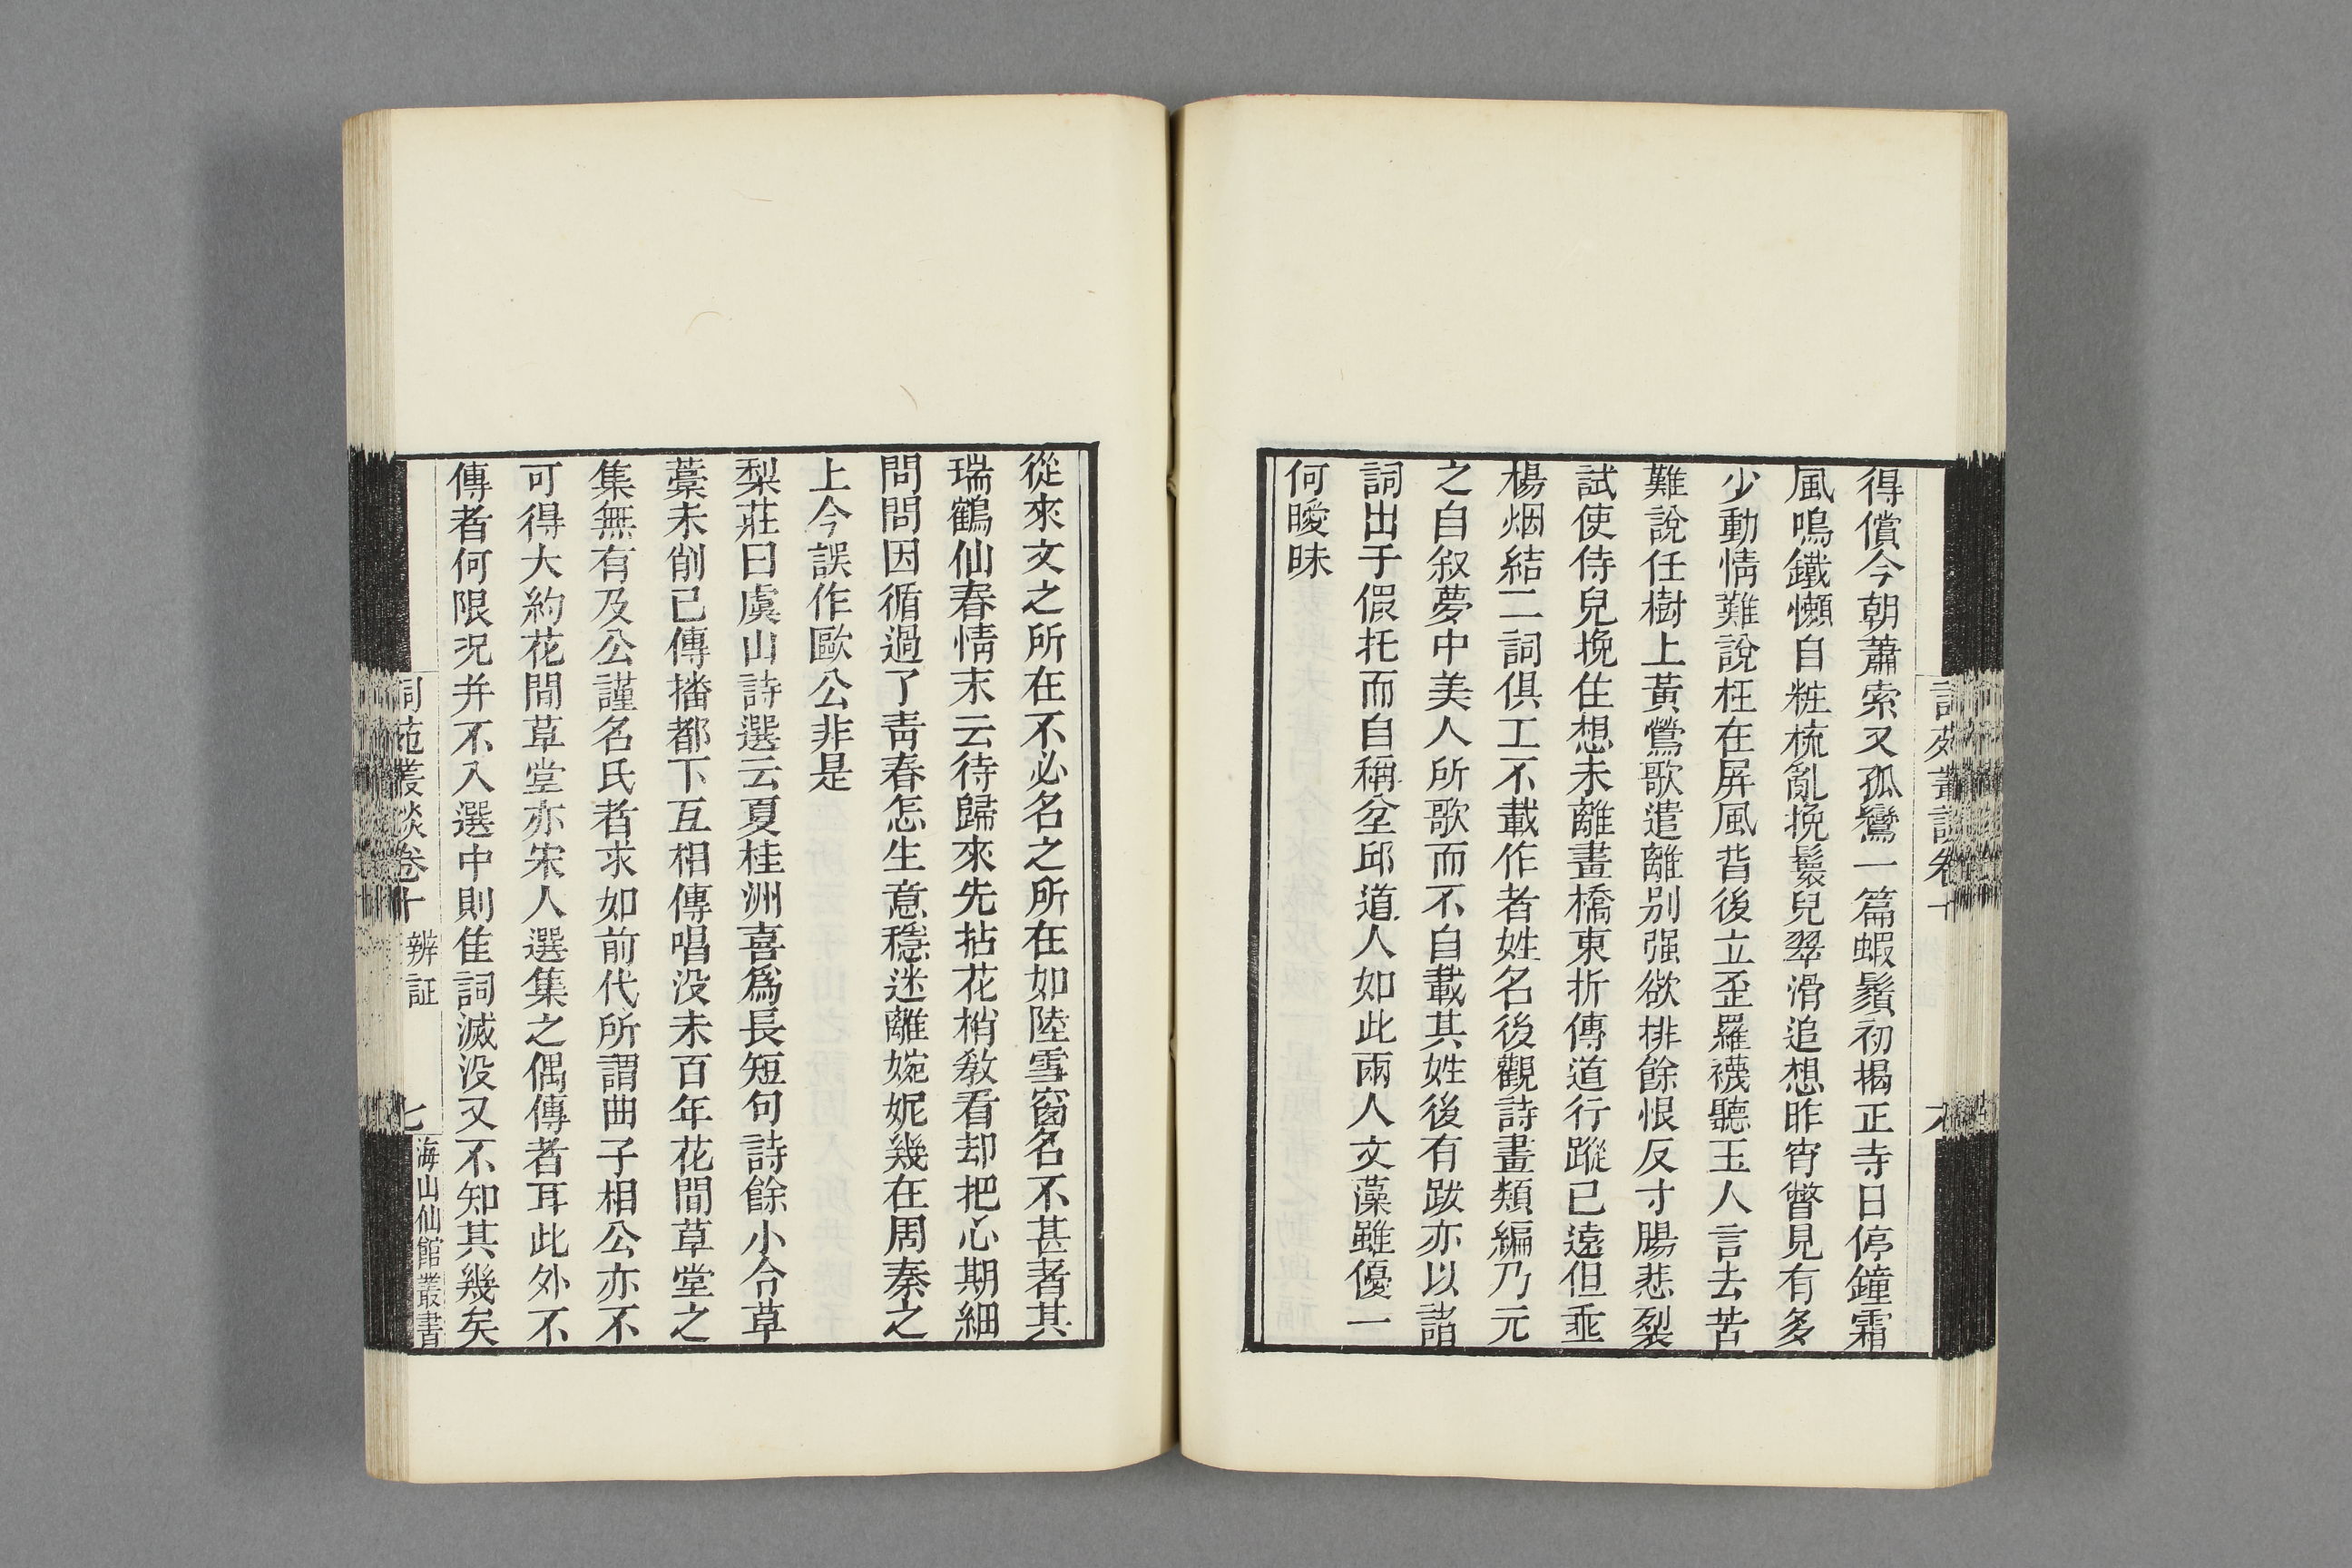 得償今朝蕭索又孤鸞一篇蝦鬚初揭正寺日停鐘霜
風鳴鐵懶自粧梳亂挽鬟兒翠滑追想昨宵瞥見有多
少動情難說枉在屏風背後立歪羅襪聽玉人言去苦
難說任樹上黃鶯歌遣離別强欲排餘恨反寸腸悲裂
試使侍兒挽住想未離畫橋東折傳道行蹤已遠但乖
楊烟結二詞俱工不載作者姓名後觀詩畫類編乃元
之自叙夢中美人所歌而不自載其姓後有跋亦以諸
詞出于假托而自稱坌邱道人如此兩人文藻雖優一
何曖昧
從來文之所在不必名之所在如陸雪窗名不甚著其
瑞鶴仙春情末云待歸來先拈花梢敎看却把心期細
問問因循過了靑春怎生意穩迷離婉妮幾在周秦之
上今誤作歐公非是
梨莊曰虞山詩選云夏桂洲喜爲長短句詩餘小令草
藁未削已傳播都下互相傳唱没未百年花間草堂之
集無有及公謹名氏者求如前代所謂曲子相公亦不
可得大約花間草堂亦宋人選集之偶傳者耳此外不
傳者何限況并不入選中則佳詞滅没又不知其幾矣
詞苑叢談卷十 辨証 七 海山仙館叢書